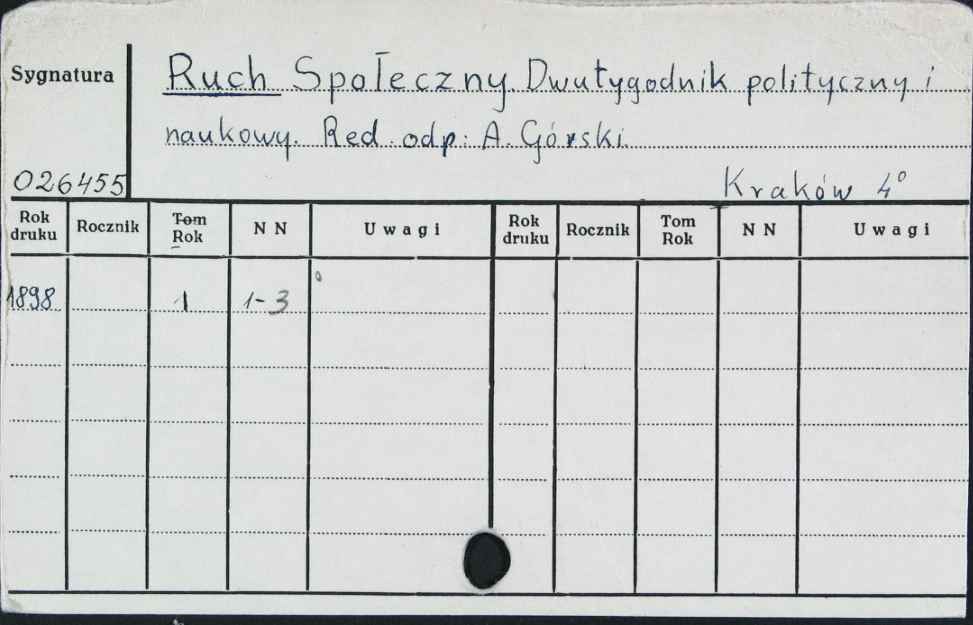 Sygnatura
Ruch Społeczny. Dwutygodnik polityczny i
naukowy. Red. odp: A. Górski.
026455
Kraków 4°
Rok druku Rocznik Tom Rok N N Uwagi Rok druku Rocznik Tom Rok N N Uwagi
1898 1 1-3